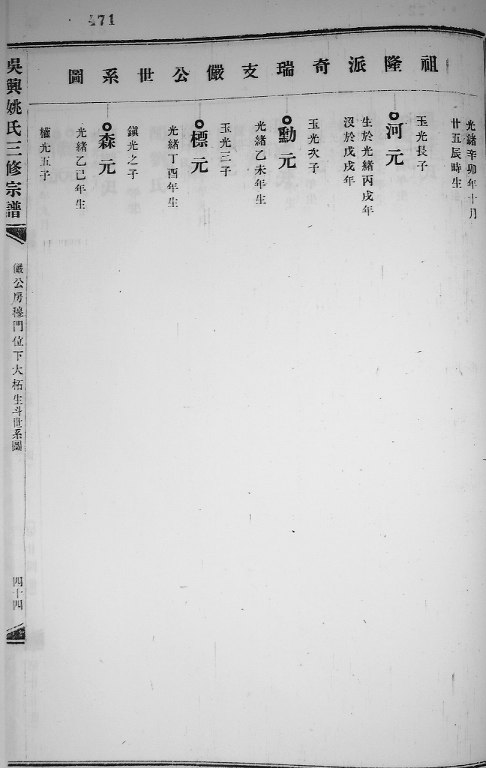 471
祖隆派奇瑞支儼公世系圖
光緒辛卯年十月
廿五辰時生
玉光長子
河元
生於光緒丙戌年
沒於戊戌年
玉光次子
勳元
光緒乙未年生
玉光三子
標元
光緒丁酉年生
鎭光之子
森元
光緒乙巳年生
權光五子
吳興姚氏三修宗譜
儼公房穆門位下大柘生斗世系圖
四十四